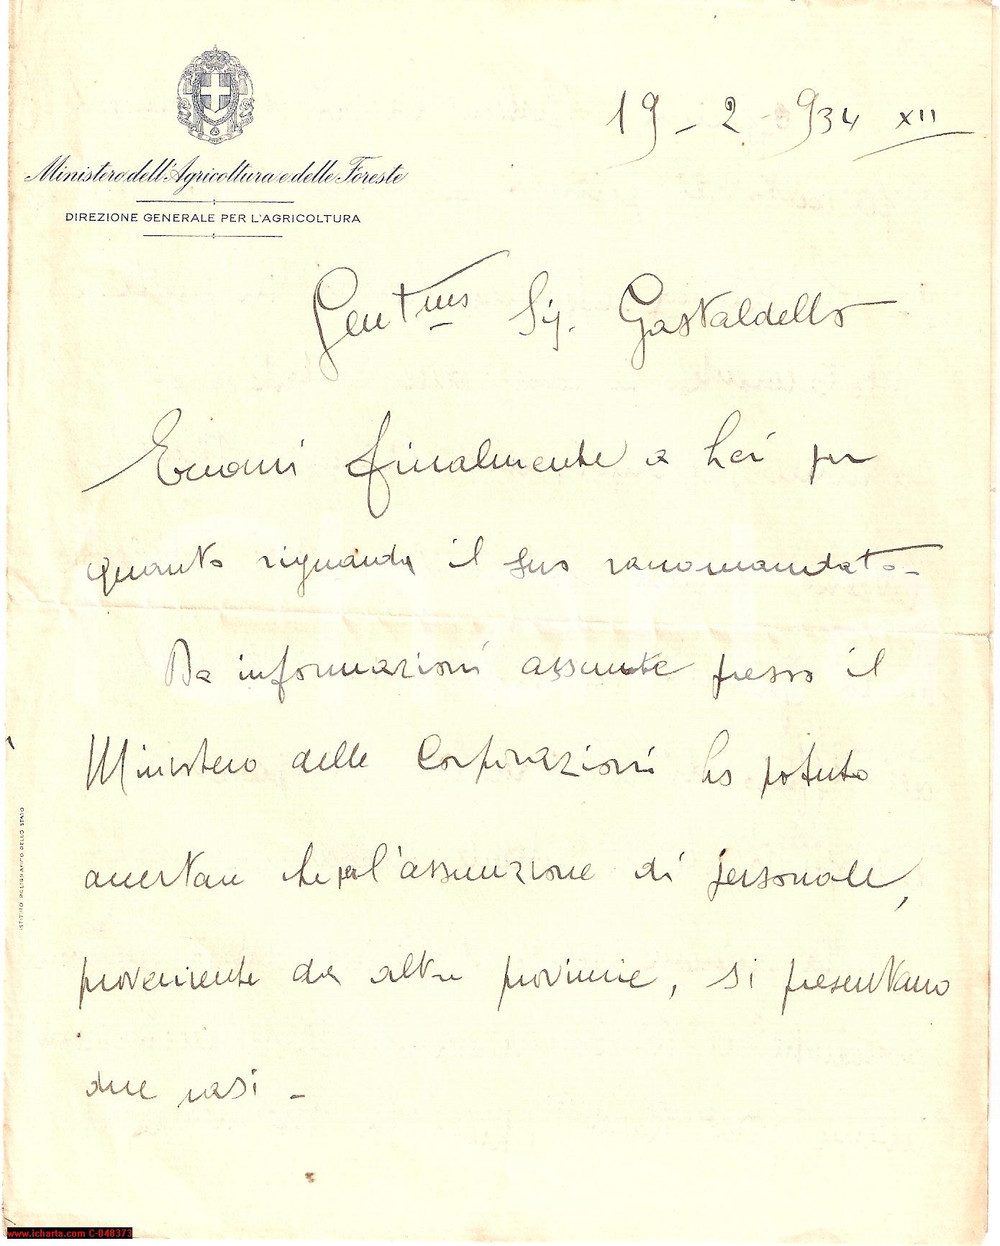 19 - 2 - 934 XII
Ministero dell'Agricoltura e delle Foreste
DIREZIONE GENERALE PER L'AGRICOLTURA
Gent.mo Sig. Gastaldello
Eccomi finalmente a Lei per
quanto riguarda il suo raccomandato -
Da informazioni assunte presso il
Ministero delle Corporazioni ho potuto
accertare che per l'assunzione di personale,
proveniente da altre provincie, si presentano
due casi -
ISTITUTO POLIGRAFICO DELLO STATO
www.icharta.com C-048373